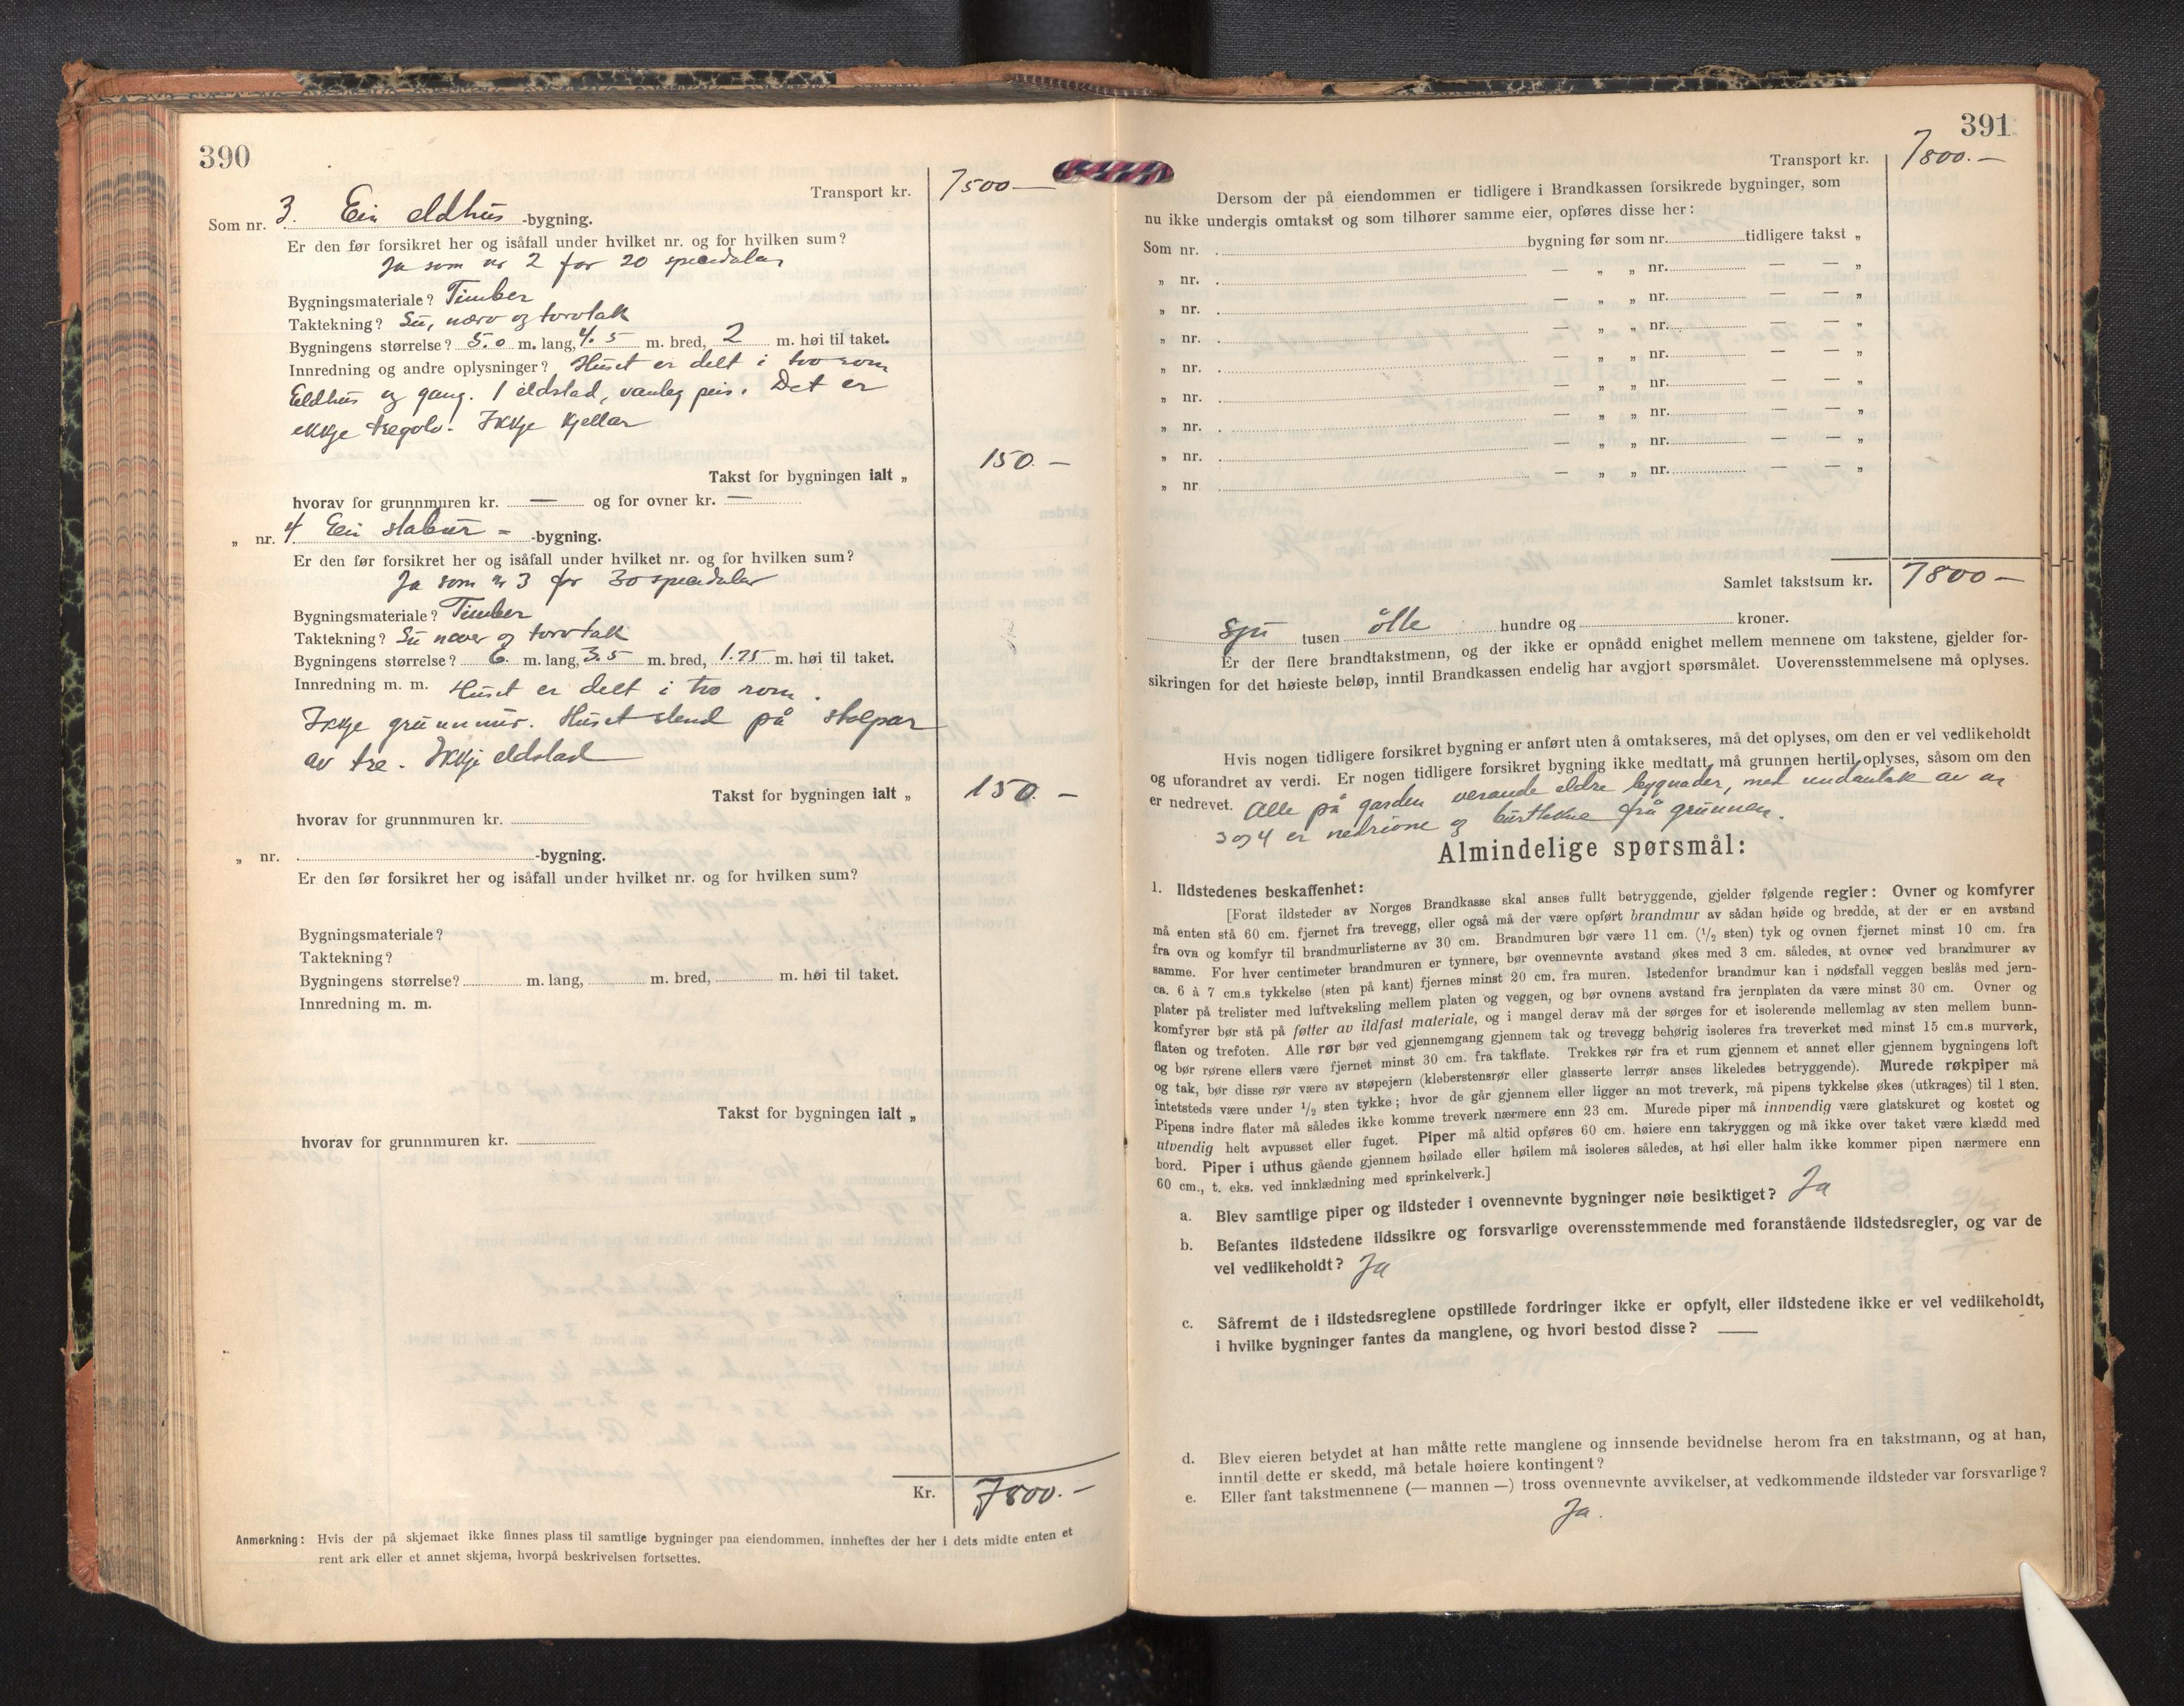 390
Transport kr. 7500.—
Som nr. 3. Ein eldhus -bygning.
Er den før forsikret her og isåfall under hvilket nr. og for hvilken sum?
Ja som nr 2 for 20 speciedalar
Bygningsmateriale? Timber
Taktekning? Su, nævr og torvtak
Bygningens størrelse? 5.0 m. lang, 4.5 m. bred, 2 m. høi til taket.
Innredning og andre oplysninger? Huset er delt i tvo rom
Eldhus og gang. 1 eldstad, vanleg peis. Det er
ikkje tregolv. Ikkje kjellar
150.—
Takst for bygningen ialt „
hvorav for grunnmuren kr. — og for ovner kr. —
„ nr. 4 Ein stabur = -bygning.
Er den før forsikret her og isåfall under hvilket nr. og for hvilken sum?
Ja som nr 3 for 30 speciedalar
Bygningsmateriale? Timber
Taktekning? Su never og torvtak
Bygningens størrelse? 6. m. lang, 3.5 m. bred, 1.75 m. høi til taket.
Innredning m. m. Huset er delt i tvo rom.
Ikkje grunnmur. Huset stend på stolpar
av tre. Ikkje eldstad
Takst for bygningen ialt „ 150.—
hvorav for grunnmuren kr.
„ nr. -bygning.
Er den før forsikret her og isåfall under hvilket nr. og for hvilken sum?
Bygningsmateriale?
Taktekning?
Bygningens størrelse? m. lang, m. bred, m. høi til taket.
Innredning m. m.
Takst for bygningen ialt „
hvorav for grunnmuren kr.
Kr. 7800.—
Anmerkning: Hvis der på skjemaet ikke finnes plass til samtlige bygninger paa eiendommen, innheftes der her i dets midte enten et
rent ark eller et annet skjema, hvorpå beskrivelsen fortsettes.
391
Transport kr. 7800.—
Dersom der på eiendommen er tidligere i Brandkassen forsikrede bygninger, som
nu ikke undergis omtakst og som tilhører samme eier, opføres disse her:
Som nr. bygning før som nr. tidligere takst „
„ nr. — „ „ nr. — — „
„ nr. — „ „ nr. — — „
„ nr. — „ „ nr. — — „
„ nr. — „ „ nr. — — „
„ nr. — „ „ nr. — — „
„ nr. — „ „ nr. — — „
„ nr. — „ „ nr. — — „
„ nr — „ „ nr. — — „
Samlet takstsum kr. 7800—
Sju tusen åtte hundre og kroner.
Er der flere brandtakstmenn, og der ikke er opnådd enighet mellem mennene om takstene, gjelder for-
sikringen for det høieste beløp, inntil Brandkassen endelig har avgjort spørsmålet. Uoverensstemmelsene må oplyses.
Hvis nogen tidligere forsikret bygning er anført uten å omtakseres, må det oplyses, om den er vel vedlikeholdt
og uforandret av verdi. Er nogen tidligere forsikret bygning ikke medtatt, må grunnen hertil oplyses, såsom om den
er nedrevet. Alle på garden verande eldre bygnader, med undantak av nr
3 og 4 er nedrivne og burttekne frå grunnen.
Almindelige spørsmål:
1. Ildstedenes beskaffenhet:
[Forat ildsteder av Norges Brandkasse skal anses fullt betryggende, gjelder følgende regler: Ovner og komfyrer
må enten stå 60 cm. fjernet fra trevegg, eller også må der være opført brandmur av sådan høide og bredde, at der er en avstand
fra ovn og komfyr til brandmurlisterne av 30 cm. Brandmuren bør være 11 cm. (1/2 sten) tyk og ovnen fjernet minst 10 cm. fra
samme. For hver centimeter brandmuren er tynnere, bør ovennevnte avstand økes med 3 cm. således, at ovner ved brandmurer av
ca. 6 à 7 cm.s tykkelse (sten på kant) fjernes minst 20 cm. fra muren. Istedenfor brandmur kan i nødsfall veggen beslås med jern-
plater på trelister med luftveksling mellem platen og veggen, og bør ovnens avstand fra jernplaten da være minst 30 cm. Ovner og
komfyrer bør stå på føtter av ildfast materiale, og i mangel derav må der sørges for et isolerende mellemlag av sten mellem bunn-
flaten og trefoten. Alle rør bør ved gjennemgang gjennem tak og trevegg behørig isoleres fra treverket med minst 15 cm.s murverk,
og bør rørene ellers være fjernet minst 30 cm. fra takflate. Trekkes rør fra et rum gjennem et annet eller gjennem bygningens loft
og tak, bør disse rør være av støpejern (kleberstensrør eller glasserte lerrør anses likeledes betryggende). Murede røkpiper må
intetsteds være under 1/2 sten tykke; hvor de går gjennem eller ligger an mot treverk, må pipens tykkelse økes (utkrages) til 1 sten.
Pipens indre flater må således ikke komme treverk nærmere enn 23 cm. Murede piper må innvendig være glatskuret og kostet og
utvendig helt avpusset eller fuget. Piper må altid opføres 60 cm. høiere enn takryggen og må ikke over taket være klædd med
bord. Piper i uthus gående gjennem høilade eller høilem må isoleres således, at høi eller halm ikke kommer pipen nærmere enn
60 cm., t. eks. ved innklædning med sprinkelverk.]
a. Blev samtlige piper og ildsteder i ovennevnte bygninger nøie besiktiget? Ja
b. Befantes ildstedene ildssikre og forsvarlige overensstemmende med foranstående ildstedsregler, og var de
vel vedlikeholdt? Ja
c. Såfremt de i ildstedsreglene opstillede fordringer ikke er opfylt, eller ildstedene ikke er vel vedlikeholdt,
i hvilke bygninger fantes da manglene, og hvori bestod disse? —
d. Blev eieren betydet at han måtte rette manglene og innsende bevidnelse herom fra en takstmann, og at han,
inntil dette er skedd, må betale høiere kontingent?
e. Eller fant takstmennene (— mannen —) tross ovennevnte avvikelser, at vedkommende ildsteder var forsvarlige?
Ja.